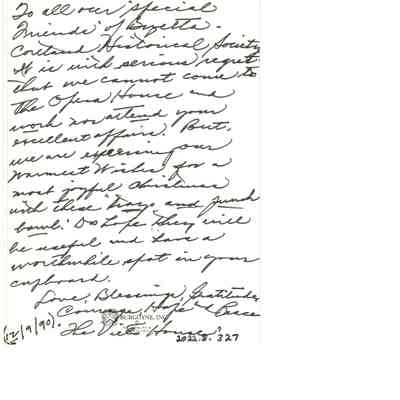 To all our "special
Friends" of Bazetta-
Cortland Historical Society
It is with serious regret
that we cannot come to
the Opera House and
work nor attend your
excellent affairs. But,
we are expressing our
Warmest Wishes for a
most joyful Christmas
with these trays and punch
bowl. Do hope they will
be useful and have a
worthwhile spot in your
cupboard.
Love, Blessings, Gratitude,
Courage, Hope & Peace
(12/9/90). The House
BURGOYNE, INC.
2022.8.327